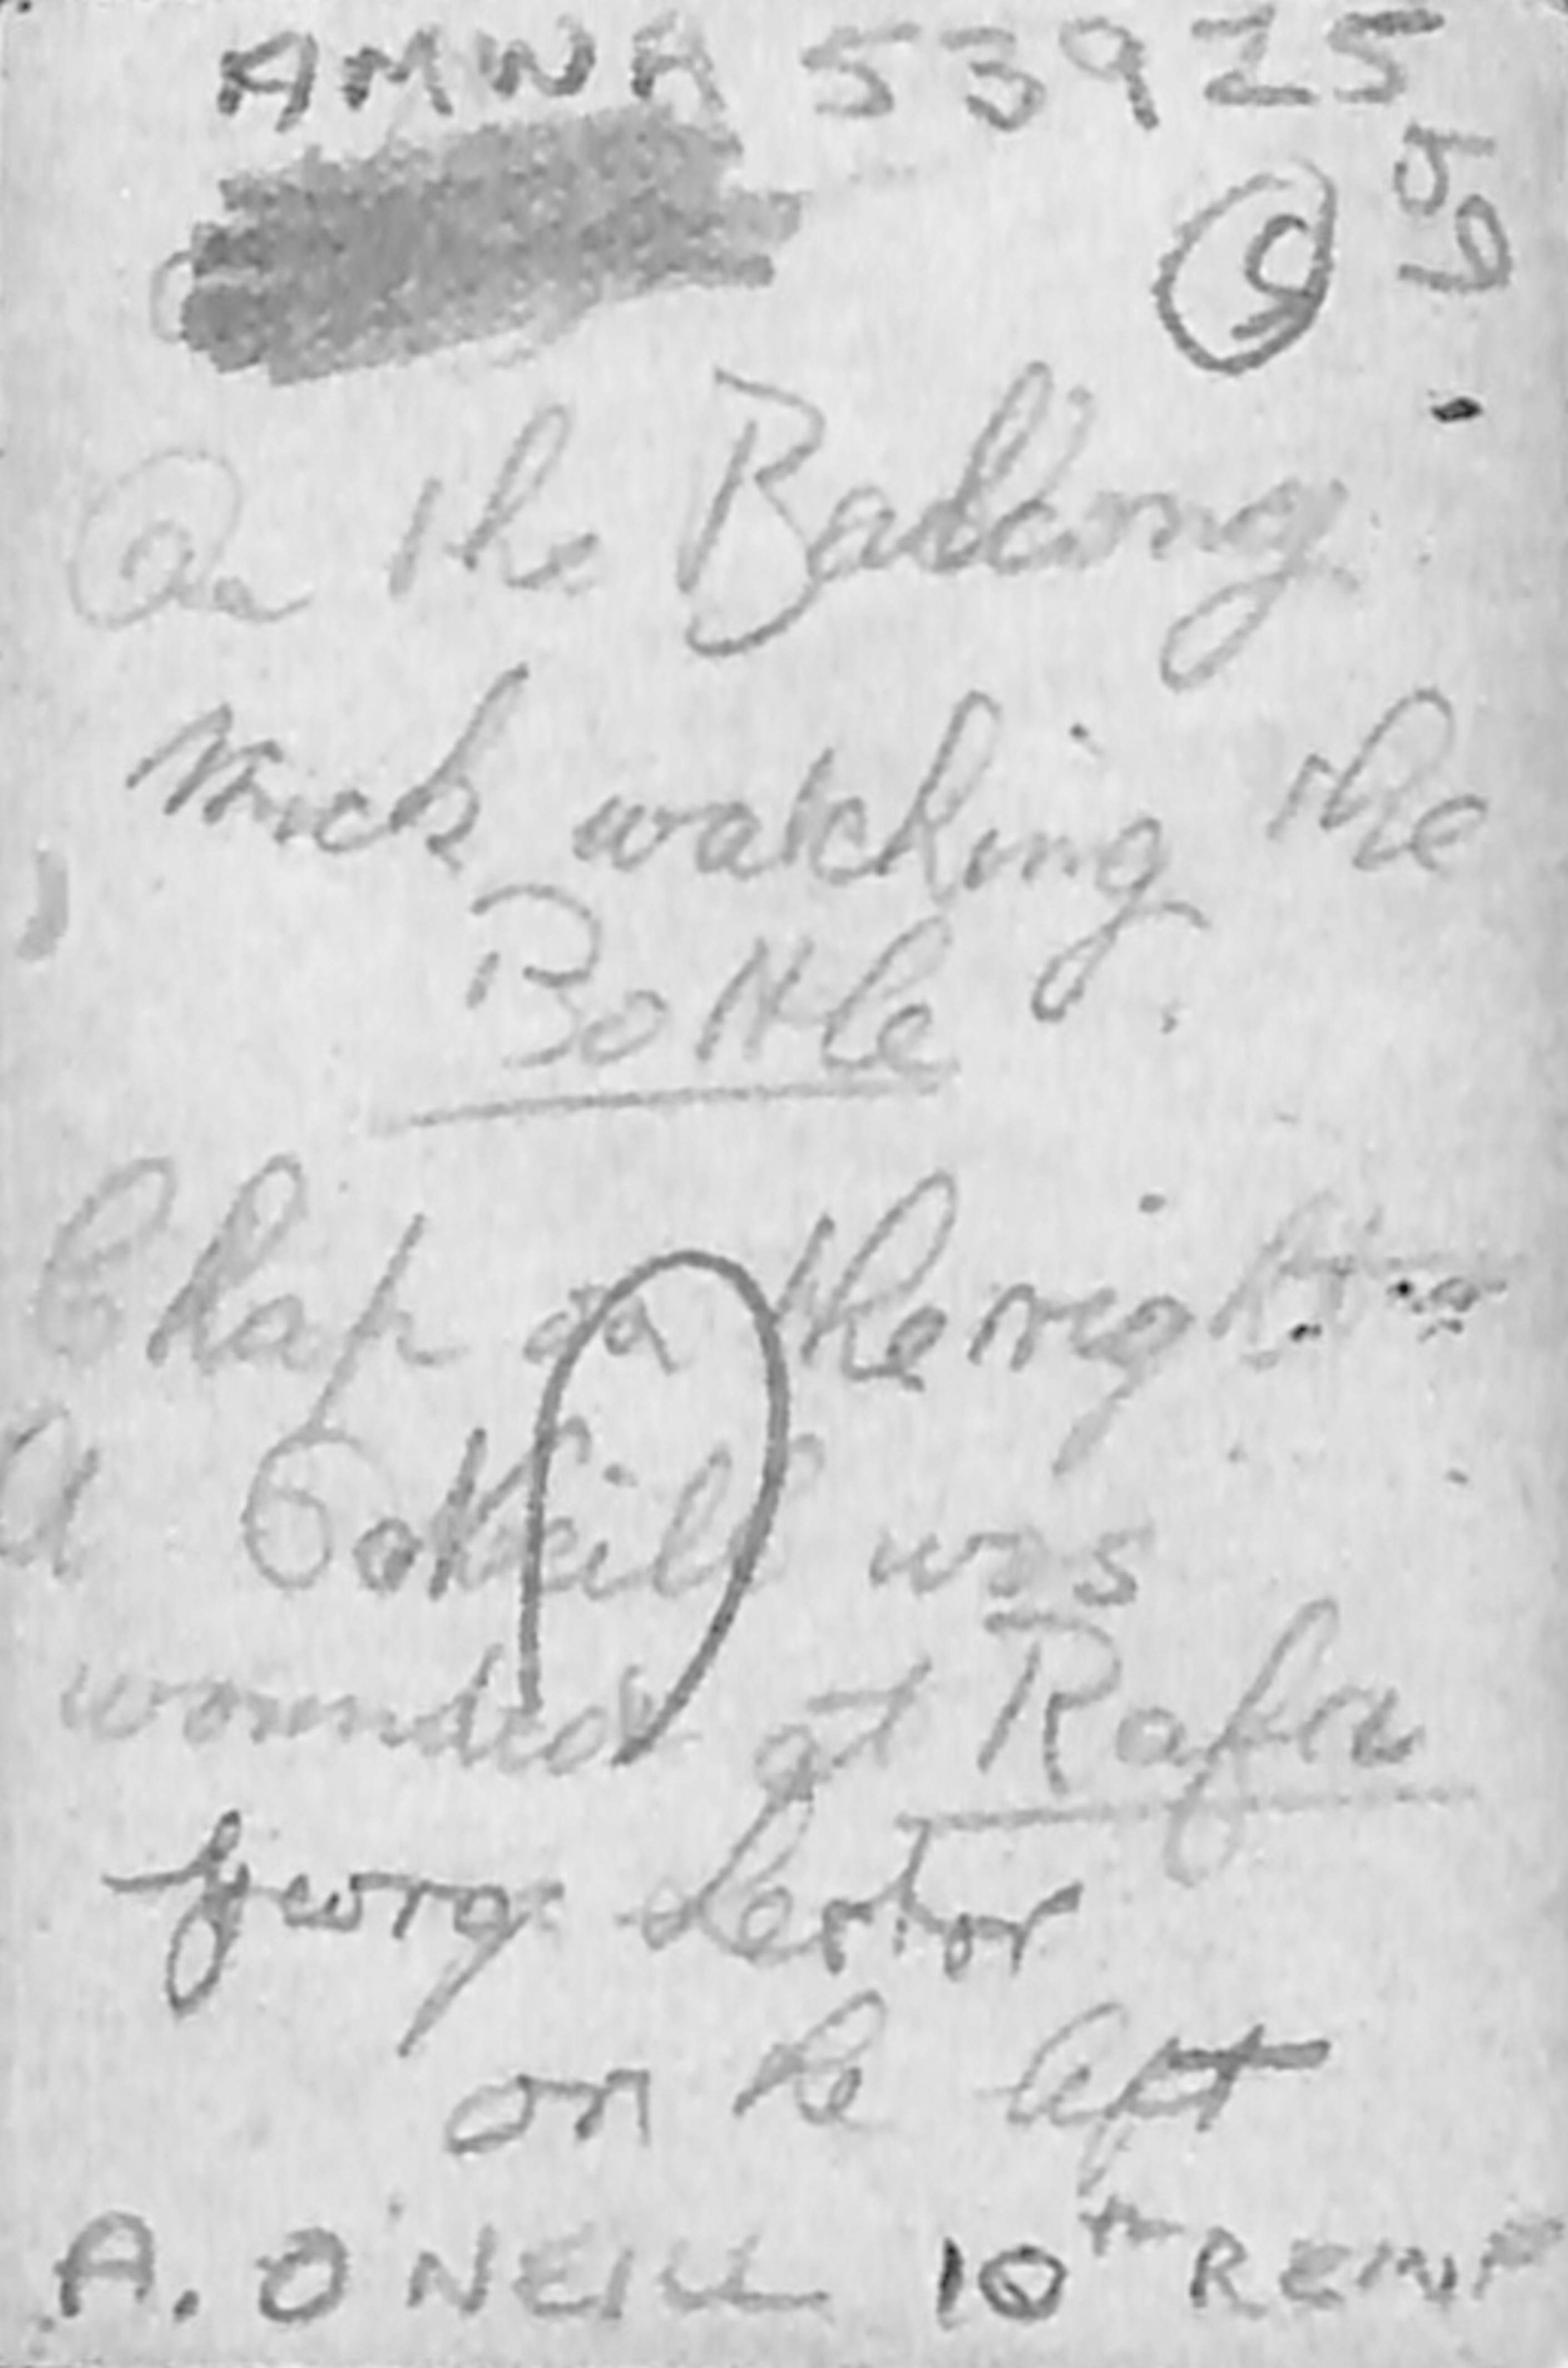 AMWA 53925
59
9
On the Ballarng
Mick watching the
Bottle
Chap on the right
A OoNeill was
wounded at Rafa
George Lestor
on he left
A. O'NEILL 10th REINF